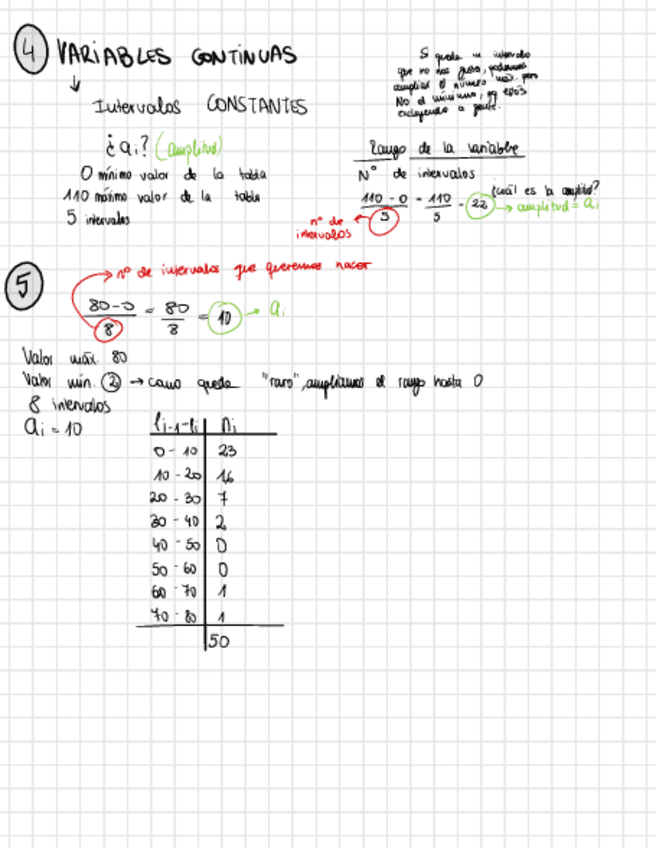 4 VARIABLES CONTINUAS
↓
Intervalos CONSTANTES
Si queda un intervalo
que no nos gusta, podemos
ampliar el número máx. pero
No el mínimo, pq estás
excluyendo a gente.
¿ai? (amplitud)
0 mínimo valor de la tabla
110 máximo valor de la tabla
5 intervalos
Rango de la variable
Nº de intervalos
110 - 0 / 5 = 110 / 5 = 22
¿cuál es la amplitud?
→ amplitud = ai
nº de
intervalos
5
nº de intervalos que queremos hacer
80-0 / 8 = 80 / 8 = 10 → ai
Valor máx. 80
Valor mín. 2 → como queda "raro", ampliamos el rango hasta 0
8 intervalos
ai = 10
li-1-li | ni
0 - 10 | 23
10 - 20 | 16
20 - 30 | 7
30 - 40 | 2
40 - 50 | 0
50 - 60 | 0
60 - 70 | 1
70 - 80 | 1
50